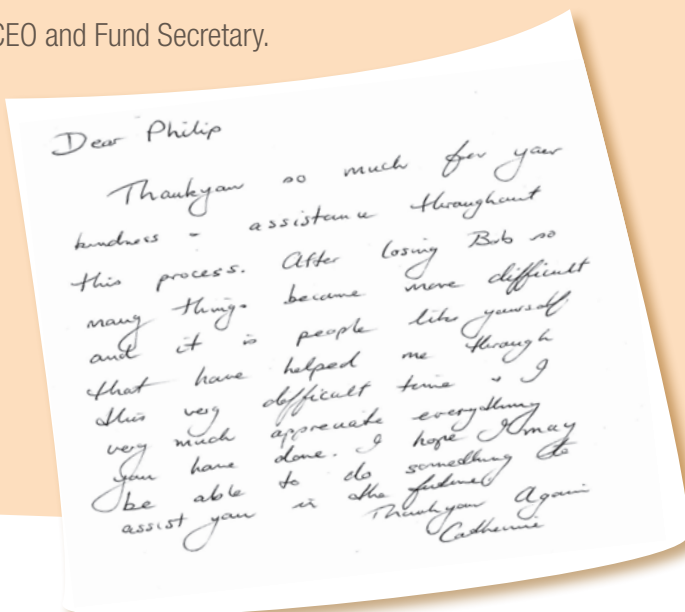 CEO and Fund Secretary.
Dear Philip
Thankyou so much for your
kindness - assistance throughout
this process. After losing Bob so
many things become more difficult
and it is people like yourself
that have helped me through
this very difficult time & I
very much appreciate everything
you have done. I hope I may
be able to do something to
assist you in the future
Thankyou Again
Catherine